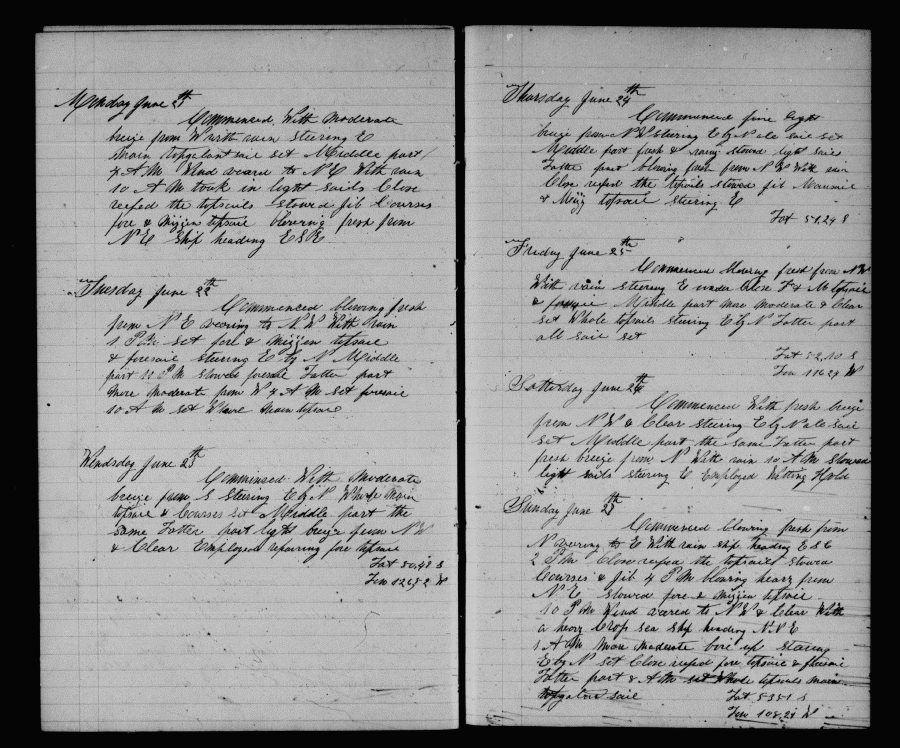 Monday June 21
Commenced With Moderate
breize from W with rain steering E
Main topgalant sail set Middle part
4 A M Wind veared to N E With rain
10 A M took in light sails Close
reefed the topsails Stowed jib Courses
fore & Mizzen topsail blowing fresh from
N E Ship heading E S E
Tuesday June 22th
Commenced blowing fresh
from N E veering to N W With rain
1 P M set fore & Mizzen topsail
& foresail steering E by N Middle
part 10 P M stowed foresail Latter part
More Moderate from W 4 A M set foresail
10 A M set Main topsail
Wendsday June 23th
Commensed With Moderate
breeze from S Steering E by N Whole Main
topsail & Courses set Middle part the
same Latter part light breize from N W
& Clear Employed repairing fore topsail
Lat 50,48 S
Lon 126,52 W
Thursday June 24th
Commenced fine light
breize from N W steering E by N ale sail set
Middle part fresh & rainy stowed light sails
Latter part blowing fresh from N W With rain
Close reefed the topsails stowed jib Mainsail
& Mizz topsail steering E
Lat 51,24 S
Friday June 25th
Commenced blowing fresh from N W
With rain steering E under Close F & M topsail
& foresail Middle part More Moderate & Clear
set Whole topsails steering E by N Latter part
all sail set
Lat 52,10 S
Lon 116,24 W
Satterday June 26
Commenced With fresh breize
from N W & Clear steering E by N ale sail
set Middle part the same Latter part
fresh breeze from N With rain 10 A M Stowed
light sails steering E Employed Wetting Hold
Sunday June 25th
Commenced blowing fresh from
N veering to E With rain ship heading E S E
2 P M Close reefed the topsails stowed
Courses & jib 4 P M blowing heavy from
N E Stowed fore & Mizzen topsail
10 P M Wind veered to N W & Clear With
a heavy Crop sea Ship heading N N E
1 A M More Moderate bore up staring
E by N set Close reefed fore topsail & foresail
Latter part 8 A M set Whole topsails Main
topgalon sail Lat 53,51 S
Lon 108,24 W